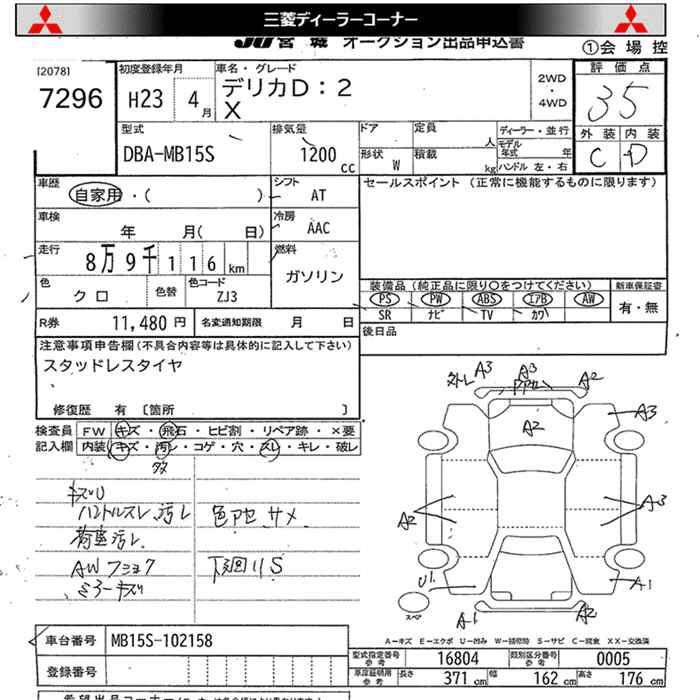 三菱ディーラーコーナー
JU宮城 オークション出品申込書
①会場控
[2078]
7296
初度登録年月
H23 4月
車名・グレード
デリカD:2
X
2WD
・
4WD
評価点
3.5
外装 内装
C D
型式
DBA-MB15S
排気量
1200 cc
ドア 定員 人
形状 W 積載 kg
ディーラー・並行
モデル年式 年
ハンドル 左・右
車歴
自家用・( )
シフト
AT
セールスポイント (正常に機能するものに限ります)
車検
年 月( 日)
冷房
AAC
走行
8万9千116km
燃料
ガソリン
色
クロ
色替
色コード
ZJ3
装備品(純正品に限り○をつけてください)
PS PW ABS エアB AW
SR ナビ TV カワ
新車保証書
有・無
R券 11,480円
名変通知期限 月 日
後日品
注意事項申告欄(不具合内容等は具体的に記入して下さい)
スタッドレスタイヤ
修復歴 有 [箇所 ]
検査員 FW キズ・飛石・ヒビ割・リペア跡・×要
記入欄 内装 キズ・汚レ・コゲ・穴・スレ・キレ・破レ
ハンドルスレ 汚レ
色アセ サメ
荷室汚レ
AWフショク
下廻りS
ミラーキズ
A3 A3 A2
A2
A3
A2
A3
U1
A1
A1
A2
スペア
A-キズ E-エクボ U-凹み W-補修跡 S-サビ C-腐食 XX-交換済
車台番号 MB15S-102158
登録番号
型式指定番号 参考 16804
類別区分番号 参考 0005
車庫証明用 参考 長さ 371 cm 幅 162 cm 高さ 176 cm